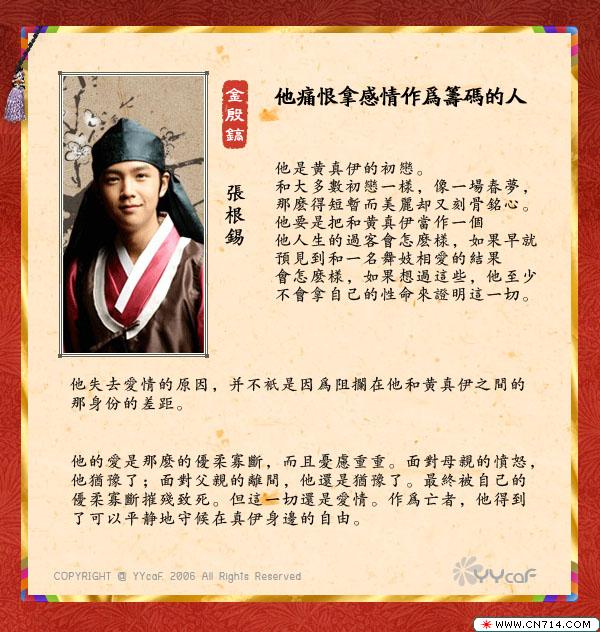 金殷鎬
張根錫
他痛恨拿感情作爲籌碼的人
他是黄真伊的初戀。
和大多數初戀一樣，像一場春夢，
那麼得短暫而美麗却又刻骨銘心。
他要是把和黄真伊當作一個
他人生的過客會怎麼樣，如果早就
預見到和一名舞妓相愛的結果
會怎麼樣，如果想過這些，他至少
不會拿自己的性命來證明這一切。
他失去愛情的原因，并不衹是因爲阻攔在他和黄真伊之間的
那身份的差距。
他的愛是那麼的優柔寡斷，而且憂慮重重。面對母親的憤怒，
他猶豫了；面對父親的離間，他還是猶豫了。最終被自己的
優柔寡斷摧殘致死。但這一切還是愛情。作爲亡者，他得到
了可以平静地守候在真伊身邊的自由。
COPYRIGHT @ YYcaF. 2006 All Rights Reserved
YYcaF
WWW.CN714.COM